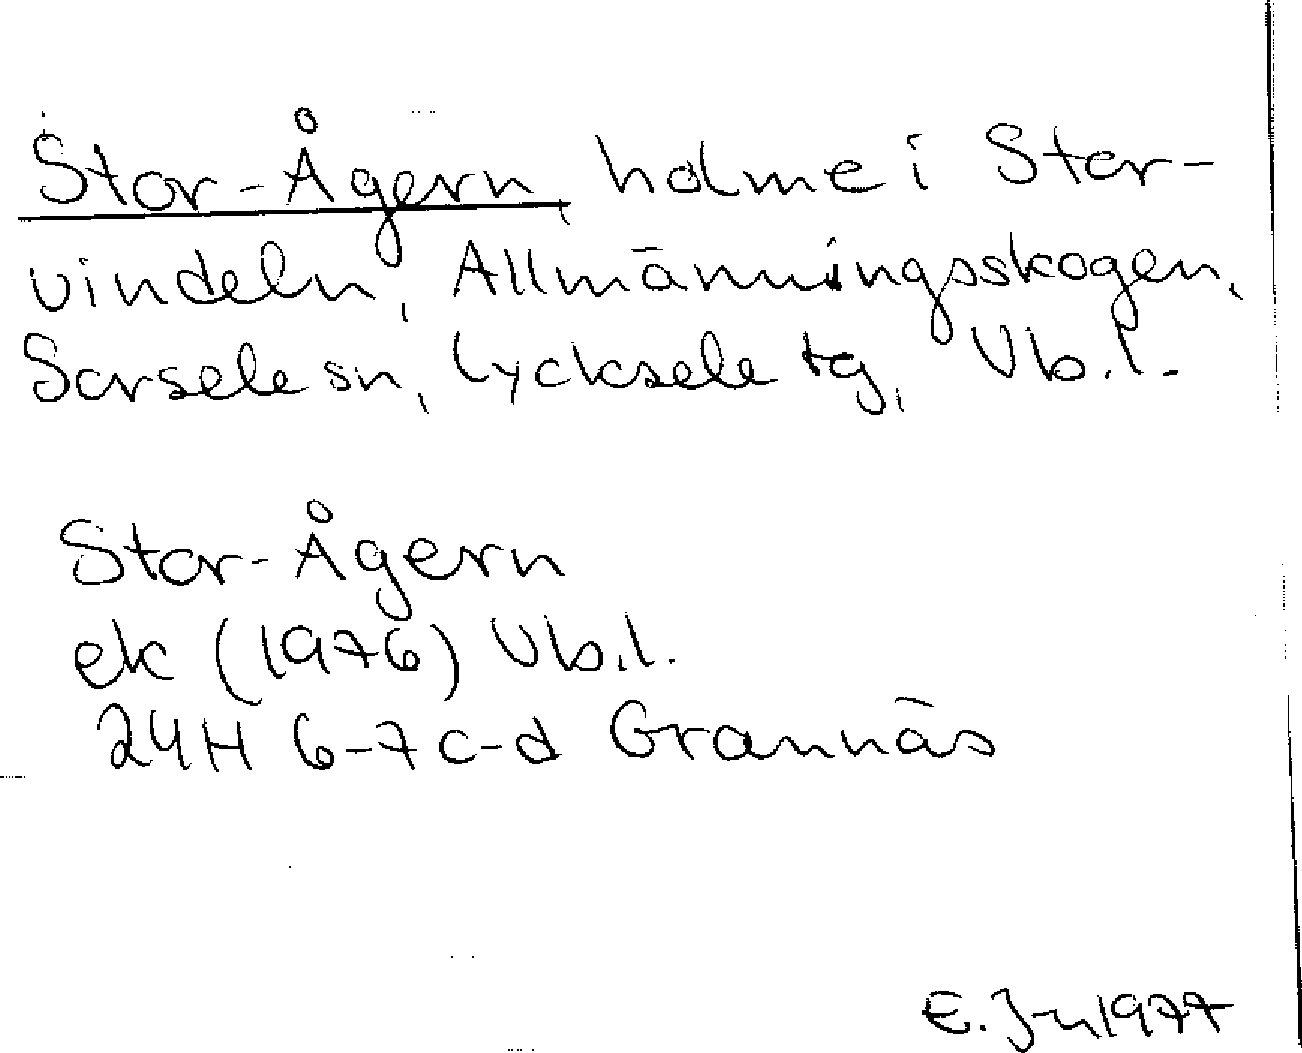 Stor-Ågern, holme i Stor-
vindeln, Allmänningsskogen,
Sorsele sn, Lycksele tg, Vb.l.
Stor-Ågern
ek (1976) Vb.l.
24H 6-7 c-d Grannäs
E. Jn 1977